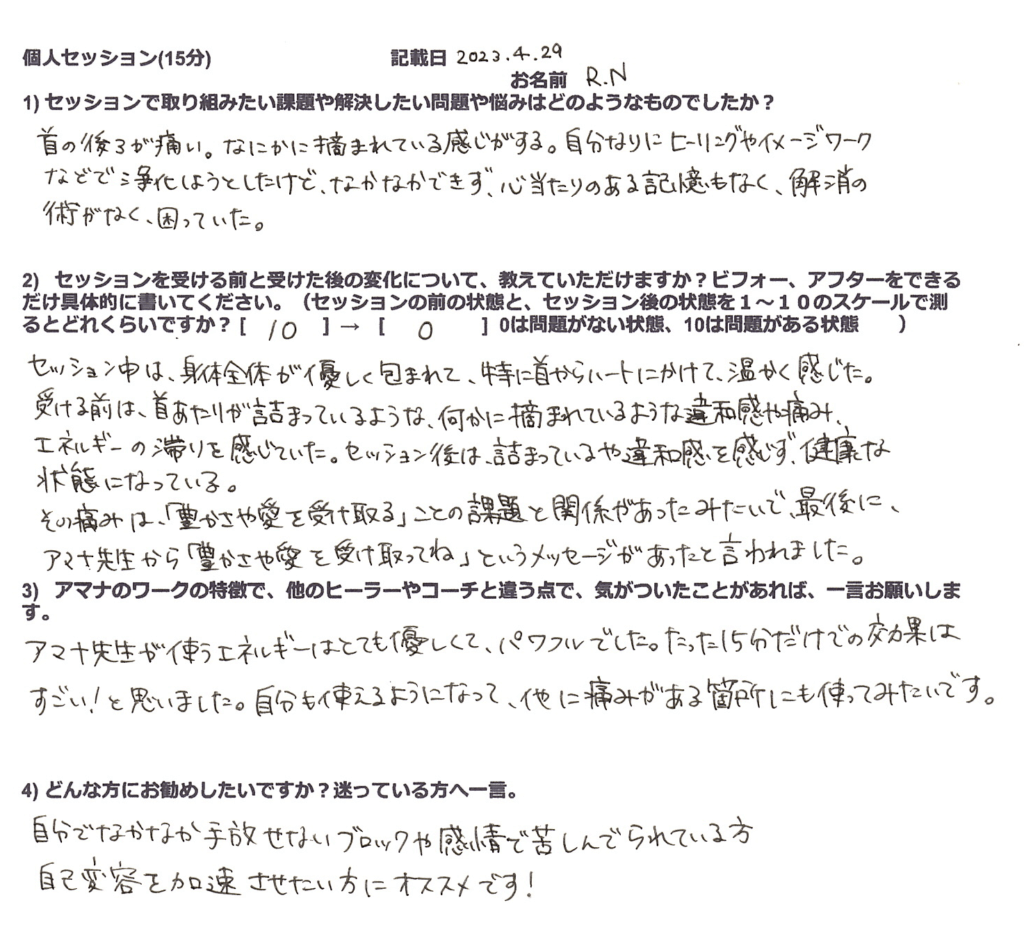 個人セッション(15分)
記載日 2023.4.29
お名前 R.N
1) セッションで取り組みたい課題や解決したい問題や悩みはどのようなものでしたか？
首の後ろが痛い。なにかに摘まれている感じがする。自分なりにヒーリングやイメージワーク
などで浄化しようとしたけど、なかなかできず、心当たりのある記憶もなく、解消の
術がなく、困っていた。
2) セッションを受ける前と受けた後の変化について、教えていただけますか？ビフォー、アフターをできる
だけ具体的に書いてください。（セッションの前の状態と、セッション後の状態を１～１０のスケールで測
るとどれくらいですか？[ 10 ] → [ 0 ] 0は問題がない状態、10は問題がある状態 ）
セッション中は、身体全体が優しく包まれて、特に首からハートにかけて、温かく感じた。
受ける前は、首あたりが詰まっているような、何かに摘まれているような違和感や痛み、
エネルギーの滞りを感じていた。セッション後は、詰まっているや違和感を感じず、健康な
状態になっている。
その痛みは、「豊かさや愛を受け取る」ことの課題と関係があったみたいで、最後に、
アマナ先生から「豊かさや愛を受け取ってね」というメッセージがあったと言われました。
3) アマナのワークの特徴で、他のヒーラーやコーチと違う点で、気がついたことがあれば、一言お願いしま
す。
アマナ先生が使うエネルギーはとても優しくて、パワフルでした。たった15分だけでの効果は
すごい！と思いました。自分も使えるようになって、他に痛みがある箇所にも使ってみたいです。
4) どんな方にお勧めしたいですか？迷っている方へ一言。
自分でなかなか手放せないブロックや感情で苦しんでられている方
自己変容を加速させたい方にオススメです！